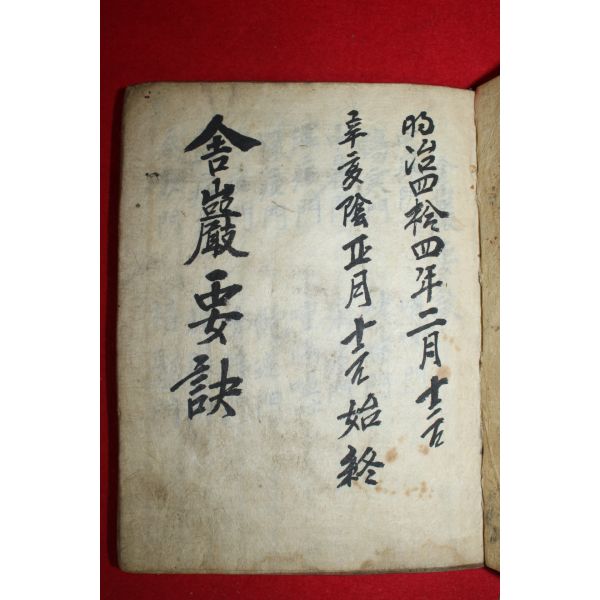 明治四拾四年二月十二日
辛亥陰正月十二日始終
舍巖要訣